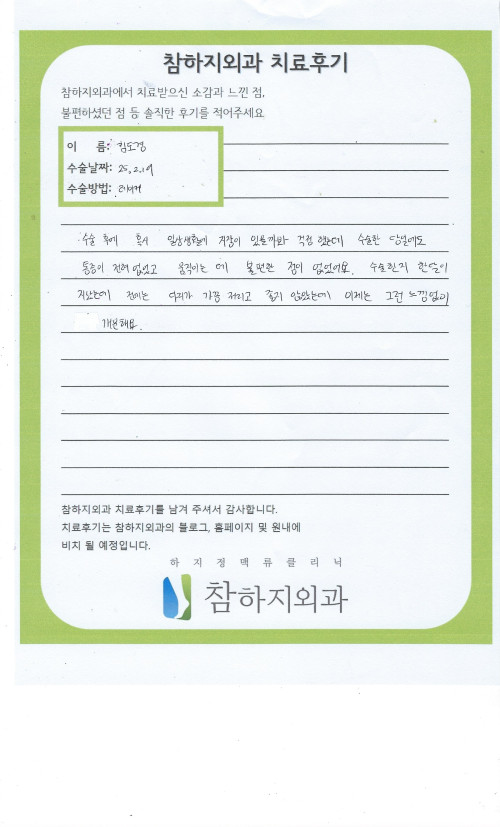 참하지외과 치료후기
참하지외과에서 치료받으신 소감과 느낀 점,
불편하셨던 점 등 솔직한 후기를 적어주세요
이 름: 김도경
수술날짜: 25. 2. 19
수술방법: 레이저
수술 후에 혹시 일상생활에 지장이 있을까봐 걱정했는데 수술한 당일에도
통증이 전혀 없었고 움직이는 데 불편한 점이 없었어요. 수술한지 한달이
지났는데 전에는 다리가 가끔 저리고 좋지 않았는데 이제는 그런 느낌없이
개분해요.
참하지외과 치료후기를 남겨 주셔서 감사합니다.
치료후기는 참하지외과의 블로그, 홈페이지 및 원내에
비치 될 예정입니다.
하지정맥류클리닉
참하지외과